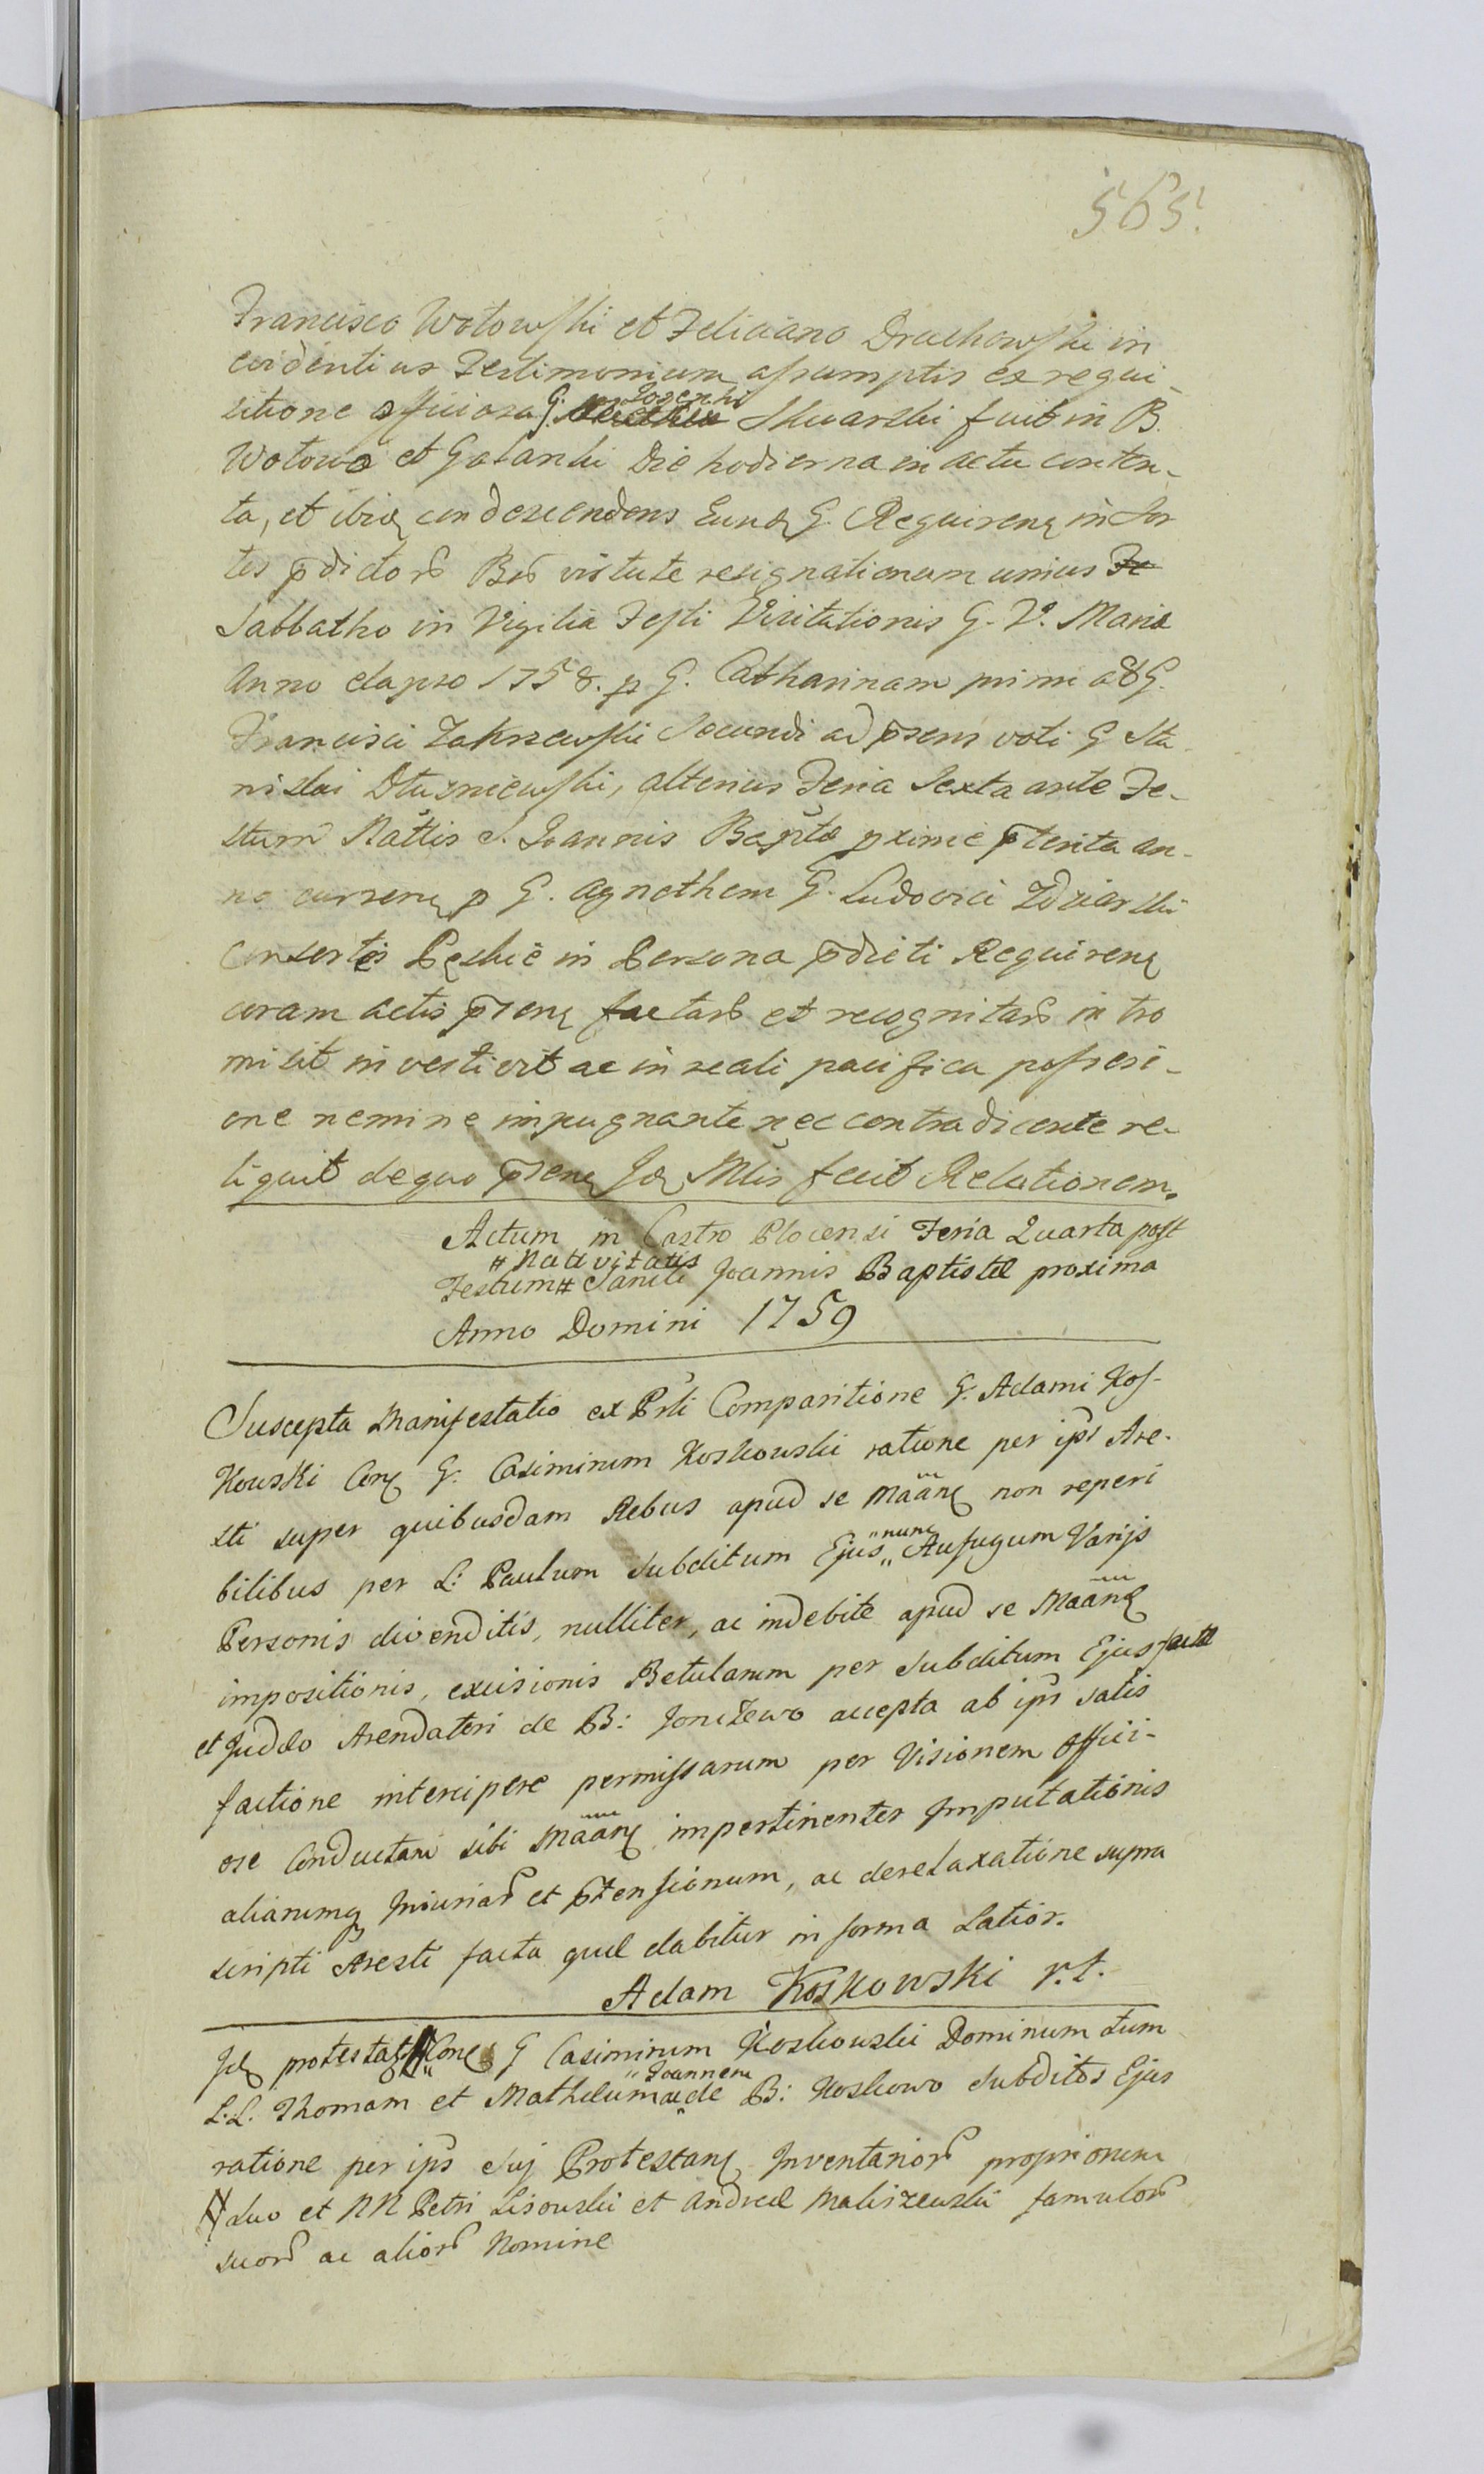 565.
Francisco Wotowski et Feliciano Drachowski in
evidentius Testimonium assumptis ex requi-
sitione officiosa G. Josephi Skwarski fuit in B.
Wotowo et Galanki Die hodierna in actu conten-
ta, et ibiq condescendens Eundq G. Requirenq in Sor
tes pdictor Bor virtute resignationum unius Fe
Sabbatho in Vigilia Festi Visitationis G. V. Maria
Anno elapso 1758. p G. Catharinam primi olG.
Francisci Zakrzewski Secundi ad prsens voti G Sta
nislai Dłuzniewski, alterius Feria Sexta ante Fe-
stum Nattis S. Joannis Bapta pxime pterita an-
no currenq p G. Agnethem G. Ludovici Zdziarski
Consortis in Persona pdicti Requirenq
coram actis prsenq factar et recognitar intro
misit investivit ac in reali pacifica possesi-
one nemine impugnante nec contradicente re-
liquit de quo prsenq Jdq Mlis fecit Relationem.
Actum in Castro Plocensi Feria Quarta post
# Nativitatis
Festum # Sancti Joannis Baptistæ proxima
Anno Domini 1759
Suscepta Manifestatio ex Prli Comparitione G. Adami Kos-
kowski Conq G. Casimirum Koskowski ratione per ips Are-
sti super quibusdam Rebus apud se Maanq non reperi
bilibus per L. Paulum Subditum Ejus "nunc Aufugum Varijs
Personis divenditis, nulliter, ac indebite apud se Maanq
impositionis, excisionis Betularum per Subditum Ejus factæ
et Juddo Arendatori de B: Jonczewo accepta ab ips satis
factione intercipere permissarum per Visionem Offici-
ose Conductam sibi Maanq impertinenter Imputationis
aliarumq Iniuriar et Ptensionum, ac derelaxatione supra
scripti Aresti facta quæ dabitur in forma Latior.
Adam Koskowski r.t.
Jdq protestatq Conq G Casimirum Koskowski Dominum tum
"Joannem
L.L. Thomam et Mathæum ac de B: Koskowo Subditos Ejus
ratione per ips Suj Protestanq Inventarior propriorum
suo et NN Petri Lisowski et Andreæ Maliszewski famulor
suor ac alior Nomine